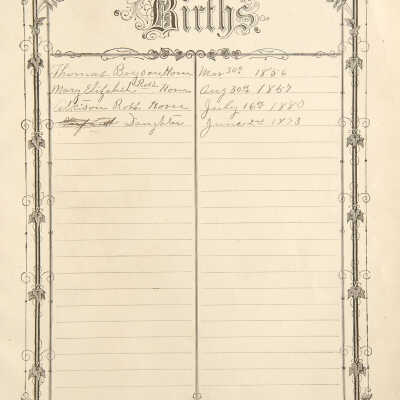 Births.
Thomas Boyson Horn Mar 30th 1856
Mary Elizabeth Ross Horn Aug 30th 1857
Ross Horn July 16th 1880
Daughter June 2nd 1873